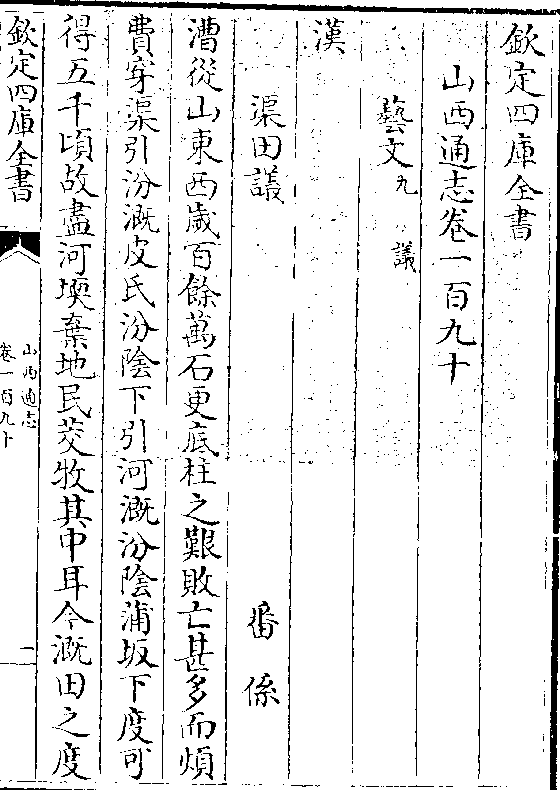 欽定四庫全書
山西通志卷一百九十
藝文九 議
漢
渠田議 番係
漕從山東西歲百餘萬石更底柱之艱敗亡甚多而煩
費穿渠引汾溉皮氏汾陰下引河溉汾陰蒲坂下度可
得五千頃故盡河堧棄地民茭牧其中耳今溉田之度
欽定四庫全書
山西通志
卷一百九十
一